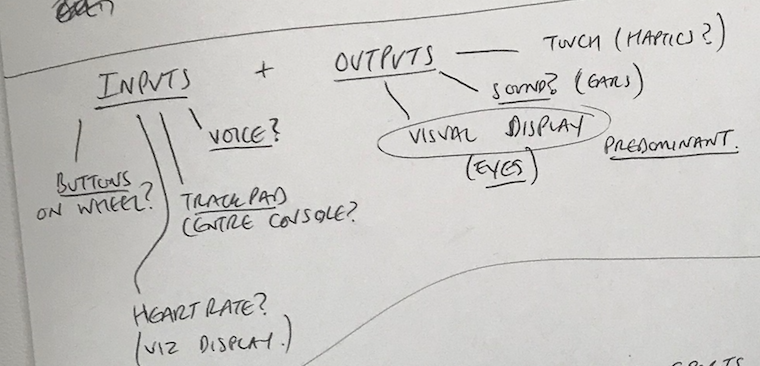 INPUTS + OUTPUTS — TOUCH (HAPTICS?)
SOUND? (EARS)
VISUAL DISPLAY
(EYES)
PREDOMINANT.
VOICE?
BUTTONS
ON WHEEL?
TRACKPAD
CENTRE CONSOLE?
HEART RATE?
(VIZ DISPLAY.)